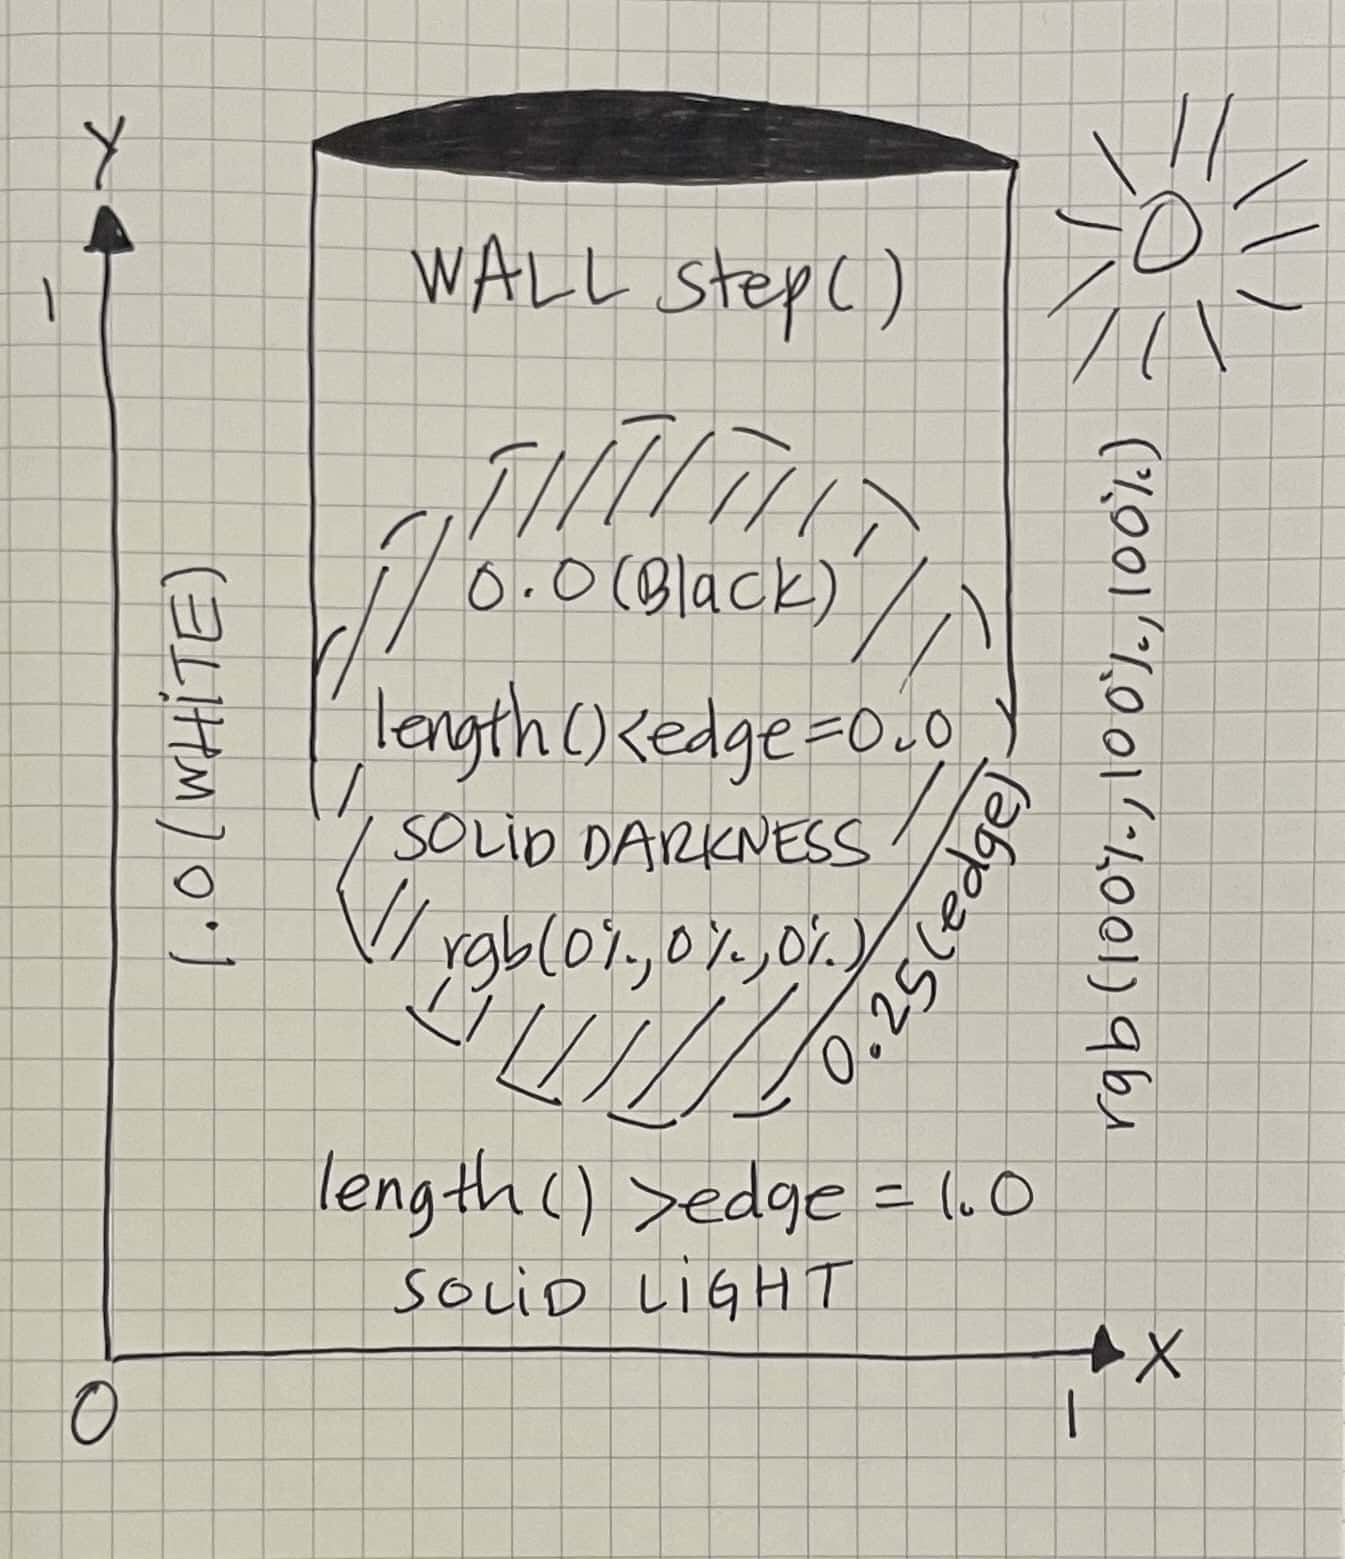 Y
1
WALL step()
0.0(Black)
length()<edge=0.0
SOLiD DARKNESS
rgb(0%,0%,0%)
0.25(edge)
1.0(WHiTE)
rgb(100%,100%,100%)
length() >edge = 1.0
SOLiD LiGHT
X
0
1